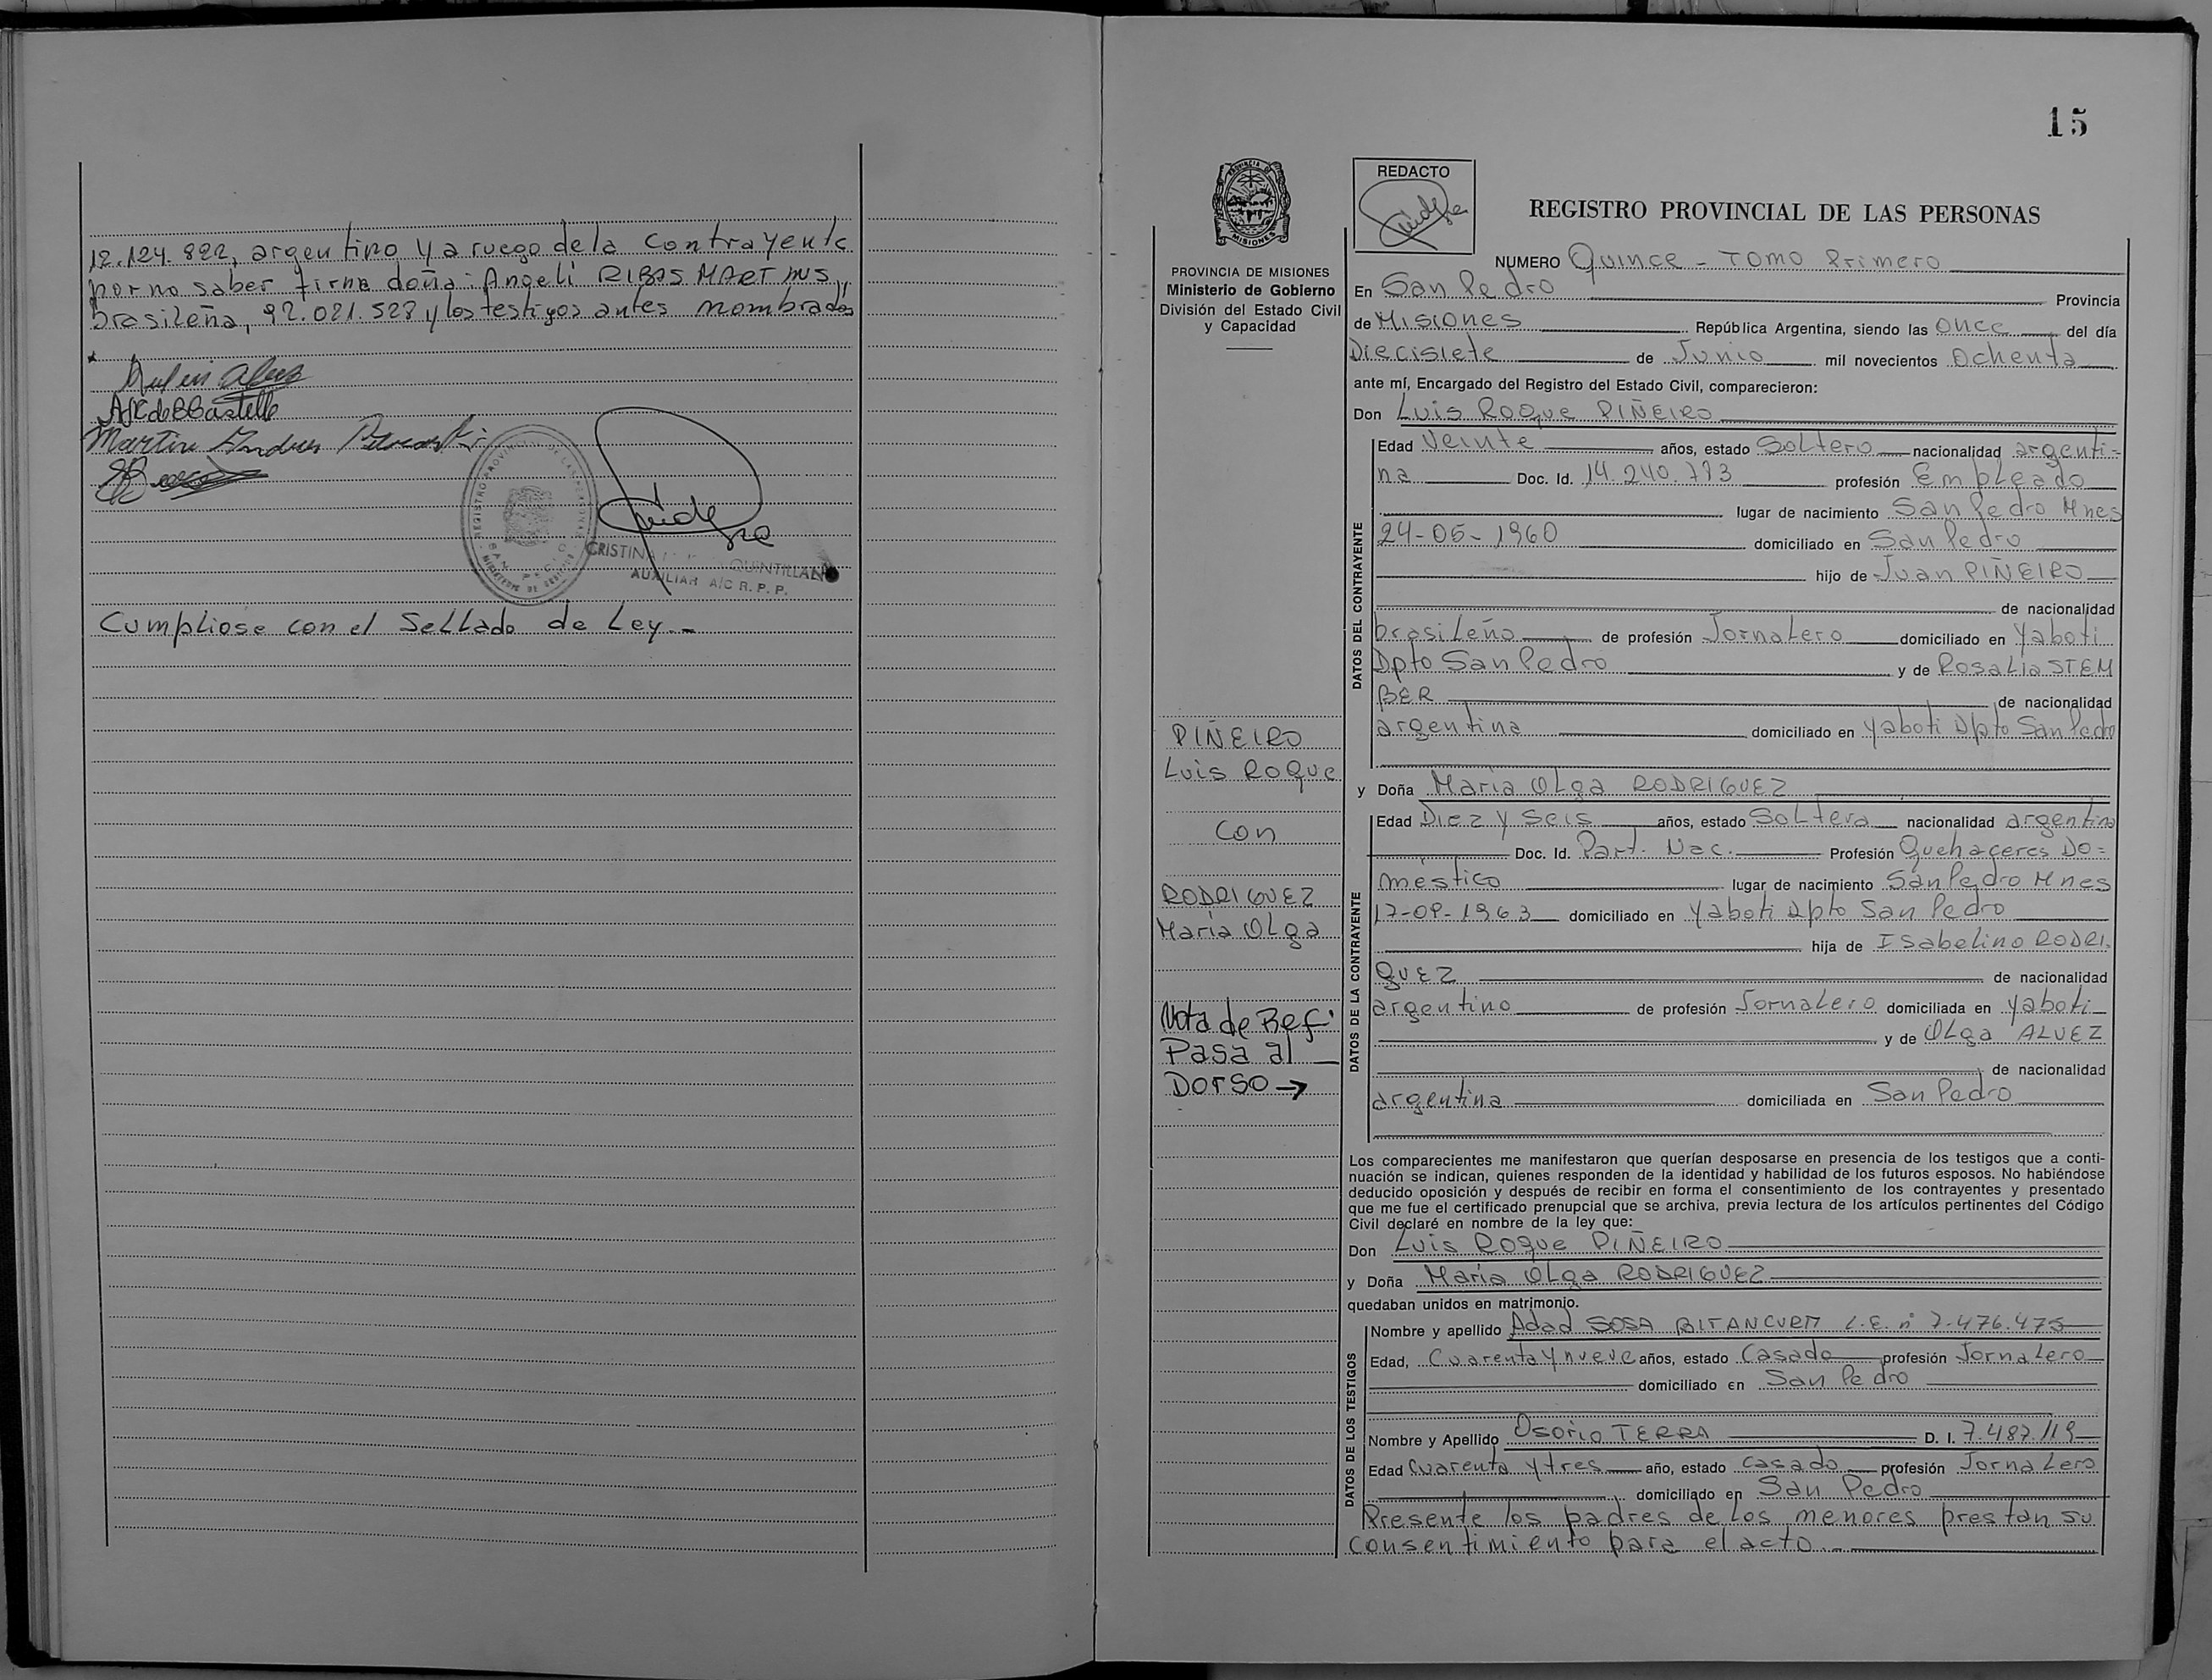 12.124.822, argentino y a ruego de la contrayente
por no saber firma doña: Angeli RIBAS MARTINS,
brasileña, 92.021.527 y los testigos antes nombrados
Martin Andres
REGISTRO PROVINCIAL DE LAS PERSONAS
SAN PEDRO
CRISTINA QUINTILLAN
AUXILIAR A/C R. P. P.
Cumpliose con el Sellado de Ley.-
15
PROVINCIA DE MISIONES
PROVINCIA DE MISIONES
Ministerio de Gobierno
División del Estado Civil
y Capacidad
PIÑEIRO
Luis Roque
Con
RODRIGUEZ
María Olga
Nota de Ref.
Pasa al
Dorso →
REDACTO
REGISTRO PROVINCIAL DE LAS PERSONAS
NUMERO Quince - TOMO Primero
En San Pedro Provincia
de Misiones República Argentina, siendo las once del día
Diecisiete de Junio mil novecientos Ochenta
ante mí, Encargado del Registro del Estado Civil, comparecieron:
Don Luis Roque PIÑEIRO
DATOS DEL CONTRAYENTE
Edad Veinte años, estado Soltero nacionalidad argenti-
na Doc. Id. 14.240.773 profesión Empleado
lugar de nacimiento San Pedro Mnes
24-05-1960 domiciliado en San Pedro
hijo de Juan PIÑEIRO
de nacionalidad
brasileño de profesión Jornalero domiciliado en Yaboti
Dpto San Pedro y de Rosalia STEM
BER de nacionalidad
argentina domiciliado en Yaboti Dpto San Pedro
y Doña María Olga RODRIGUEZ
DATOS DE LA CONTRAYENTE
Edad Diez y Seis años, estado Soltera nacionalidad argentina
Doc. Id. Part. Nac. Profesión Quehaceres Do=
méstico lugar de nacimiento San Pedro Mnes
17-09-1963 domiciliado en Yaboti Dpto San Pedro
hija de Isabelino RODRI.
GUEZ de nacionalidad
argentino de profesión Jornalero domiciliada en Yaboti
y de Olga ALVEZ
de nacionalidad
argentina domiciliada en San Pedro
Los comparecientes me manifestaron que querían desposarse en presencia de los testigos que a conti-
nuación se indican, quienes responden de la identidad y habilidad de los futuros esposos. No habiéndose
deducido oposición y después de recibir en forma el consentimiento de los contrayentes y presentado
que me fue el certificado prenupcial que se archiva, previa lectura de los artículos pertinentes del Código
Civil declaré en nombre de la ley que:
Don Luis Roque PIÑEIRO
y Doña María Olga RODRIGUEZ
quedaban unidos en matrimonio.
DATOS DE LOS TESTIGOS
Nombre y apellido Adad SOSA BITANCURT L.E. nº 7.476.475
Edad, Cuarenta y nueve años, estado Casado profesión Jornalero
domiciliado en San Pedro
Nombre y Apellido Osorio TERRA D. I. 7.487.119
Edad Cuarenta y tres año, estado casado profesión Jornalero
domiciliado en San Pedro
Presente los padres de los menores prestan su
consentimiento para el acto.-